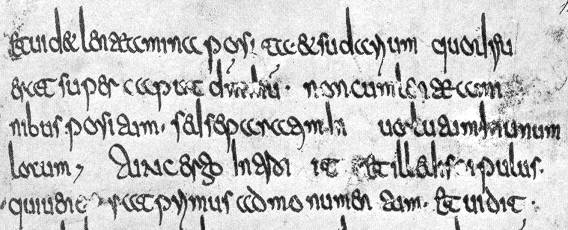 Et uidet lenteamina posita et sudarium quod fu
erat super caput non cum lenteam
nibus positum. sed separatim uolutum in unum
locum, Tunc ergo et ille discipulus.
qui primus ad monumentum. Et uidit.